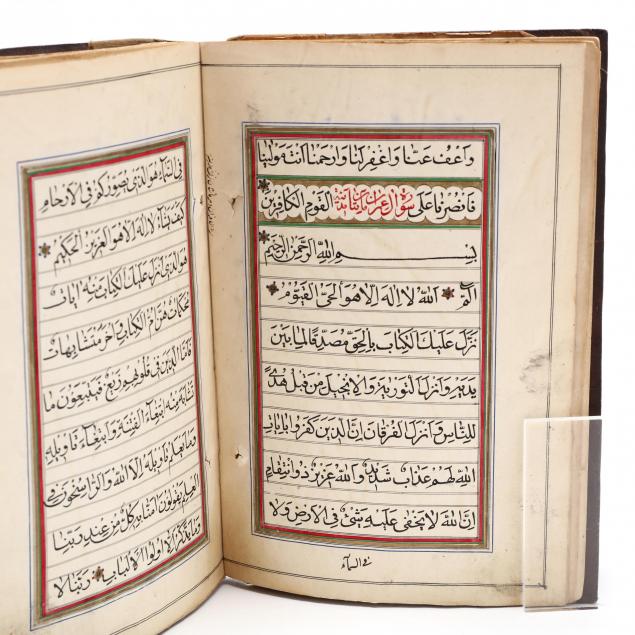 وَاعْفُ عَنَّا وَاغْفِرْ لَنَا وَارْحَمْنَا أَنْتَ مَوْلٰینَا
فَانْصُرْنَا عَلَى الْقَوْمِ الْكَافِرِينَ
سورة آل عمران مائتا آية
بِسْمِ اللَّهِ الرَّحْمٰنِ الرَّحِيمِ
الٓمٓ اللَّهُ لَا إِلٰهَ إِلَّا هُوَ الْحَيُّ الْقَيُّومُ
نَزَّلَ عَلَيْكَ الْكِتَابَ بِالْحَقِّ مُصَدِّقًا لِمَا بَيْنَ
يَدَيْهِ وَأَنْزَلَ التَّوْرٰيةَ وَالْإِنْجِيلَ مِنْ قَبْلُ هُدًى
لِلنَّاسِ وَأَنْزَلَ الْفُرْقَانَ إِنَّ الَّذِينَ كَفَرُوا بِآيَاتِ
اللَّهِ لَهُمْ عَذَابٌ شَدِيدٌ وَاللَّهُ عَزِيزٌ ذُو انْتِقَامٍ
إِنَّ اللَّهَ لَا يَخْفَى عَلَيْهِ شَيْءٌ فِي الْأَرْضِ وَلَا
في السماء
فِي السَّمَآءِ هُوَ الَّذِي يُصَوِّرُكُمْ فِي الْأَرْحَامِ
كَيْفَ يَشَآءُ لَا إِلٰهَ إِلَّا هُوَ الْعَزِيزُ الْحَكِيمُ
هُوَ الَّذِي أَنْزَلَ عَلَيْكَ الْكِتَابَ مِنْهُ آيَاتٌ
مُحْكَمَاتٌ هُنَّ أُمُّ الْكِتَابِ وَأُخَرُ مُتَشَابِهَاتٌ
فَأَمَّا الَّذِينَ فِي قُلُوبِهِمْ زَيْغٌ فَيَتَّبِعُونَ مَا
تَشَابَهَ مِنْهُ ابْتِغَآءَ الْفِتْنَةِ وَابْتِغَآءَ تَأْوِيلِهِ
وَمَا يَعْلَمُ تَأْوِيلَهُ إِلَّا اللَّهُ وَالرَّاسِخُونَ فِي
الْعِلْمِ يَقُولُونَ آمَنَّا بِهِ كُلٌّ مِنْ عِنْدِ رَبِّنَا
وَمَا يَذَّكَّرُ إِلَّا أُولُوا الْأَلْبَابِ رَبَّنَا لَا